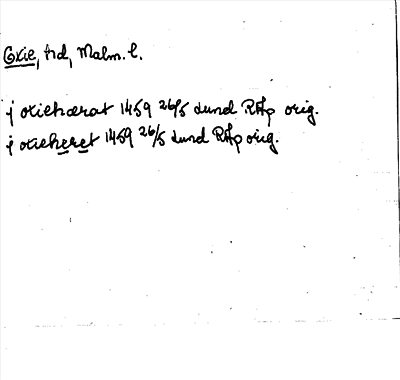 Oxie, hd, Malm. l.
j oxiehærat 1459 26/5 Lund RAp orig.
j oxiehæret 1459 26/5 Lund RAp orig.